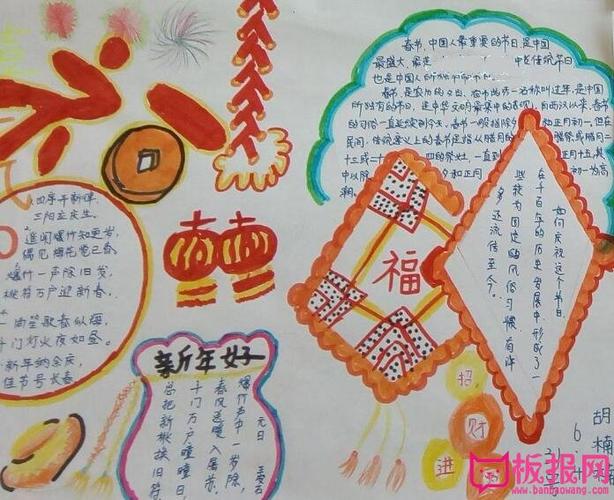 春节,中国人最重要的节日,是中国
最盛大、最
也是中国人所
春节,是农历的岁首,春节的另一名称叫过年,是中国
所独有的节日,是中华文明最集中的表现。自西汉以来,春节
的习俗一直延续到今天。春节一般指除夕和正月初一。但在
民间,传统意义上的春节是指从腊月的 腊祭或腊月
十三或二十四的祭灶,一直到 正月十五,其
中以除夕和正月初一为高
潮。
四序开新律,
三阳应庆生。
遥闻爆竹知更岁,
偶见梅花觉已春。
爆竹一声除旧岁,
桃符万户迎新春。
一曲笙歌春似海,
千门灯火夜如昼。
新年纳余庆,
佳节号长春
福
如何庆祝这个节日,
在千百年的历史发展中形成了一
些较为固定的风俗习惯,有许
多还流传至今。
新年好
元日 王安石
爆竹声中一岁除,
春风送暖入屠苏。
千门万户曈曈日,
总把新桃换旧符
招
财
进
胡楠
6
板报网
www.banbaowang.com